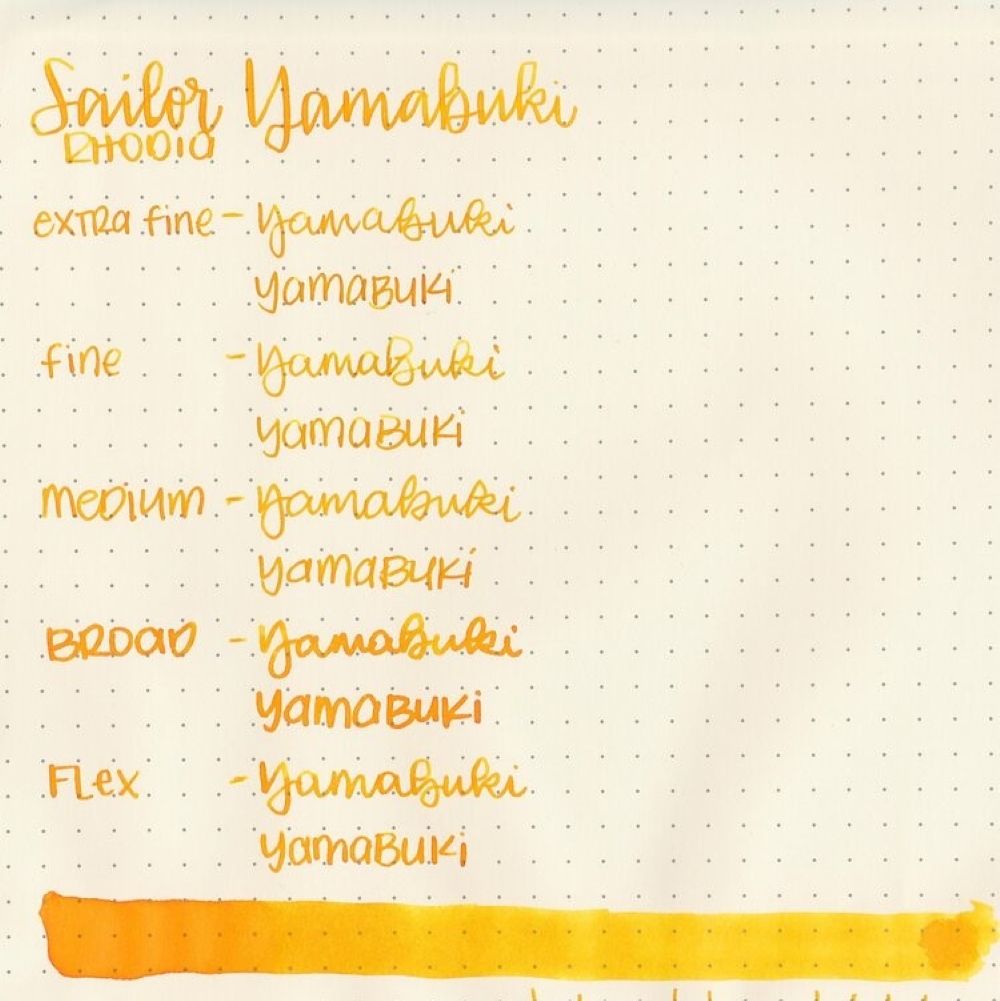 Sailor Yamabuki
RHODIA
extra fine - Yamabuki
yamaBUKi
fine - Yamabuki
yamaBUKi
MeDIUM - Yamabuki
yamaBUKi
BROaD - Yamabuki
yamaBUKi
FLex - Yamabuki
yamaBUKi